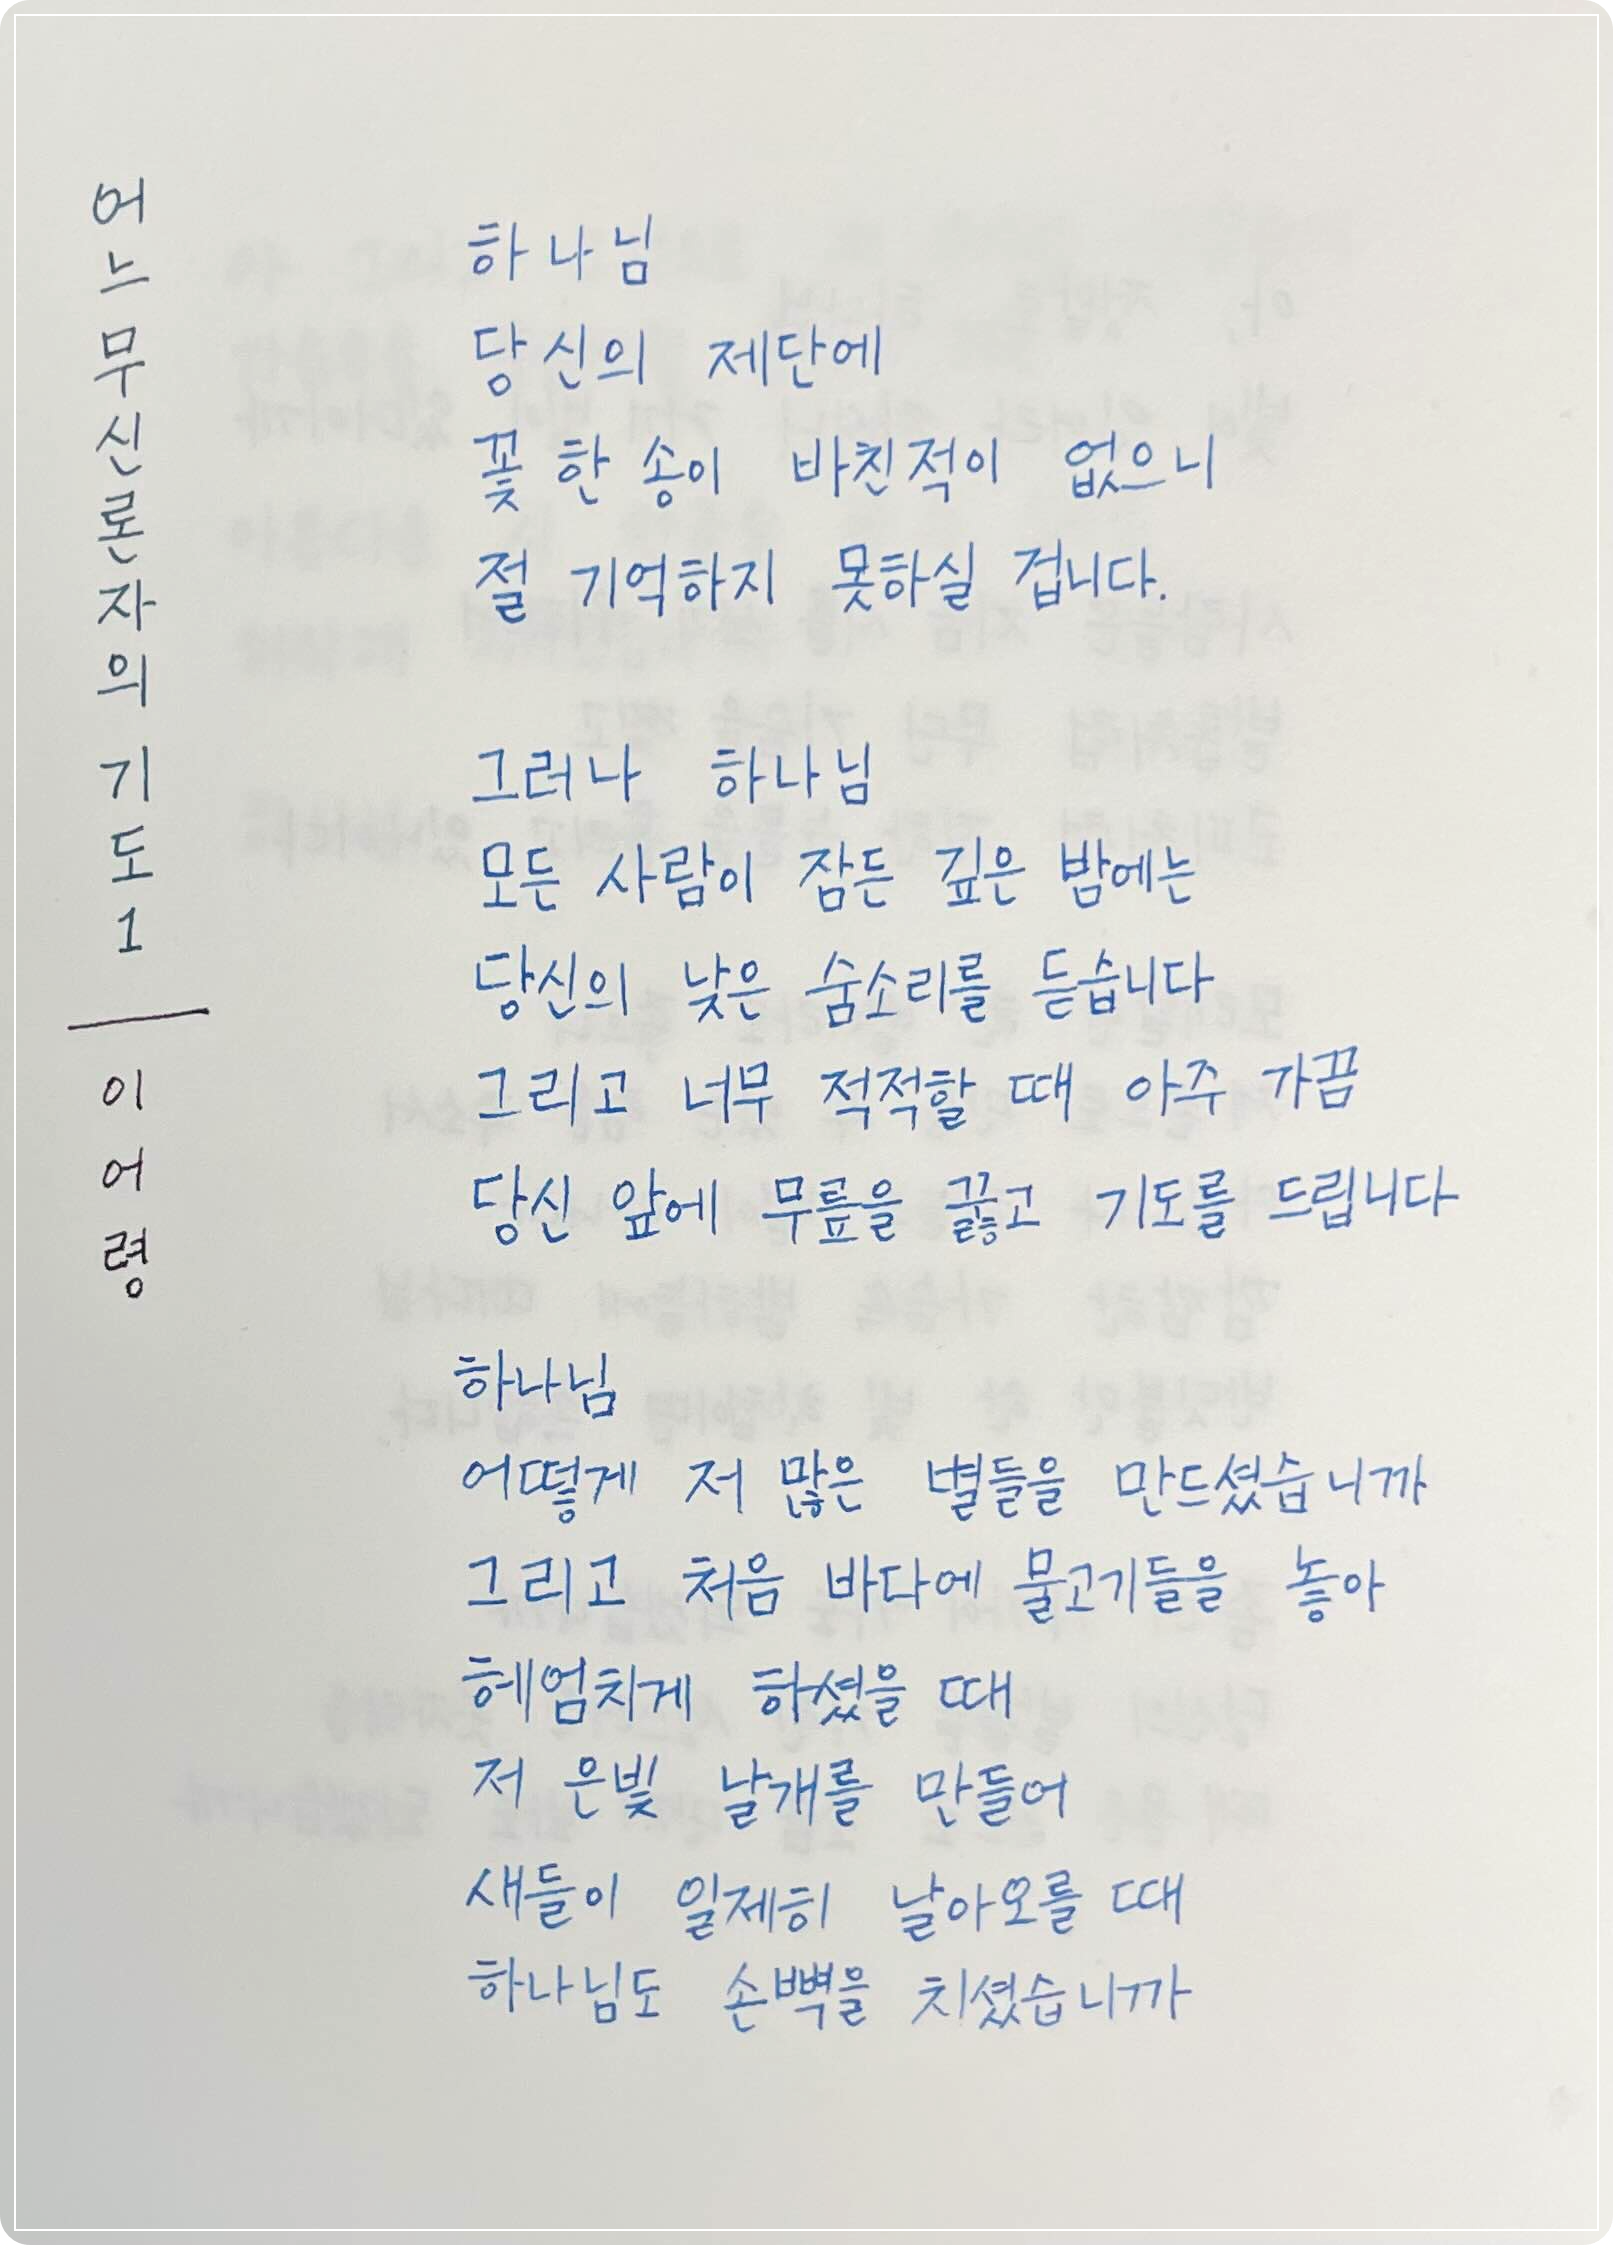 어느 무신론자의 기도1
이어령
하나님
당신의 제단에
꽃 한 송이 바친적이 없으니
절 기억하지 못하실 겁니다.
그러나 하나님
모든 사람이 잠든 깊은 밤에는
당신의 낮은 숨소리를 듣습니다
그리고 너무 적적할 때 아주 가끔
당신 앞에 무릎을 꿇고 기도를 드립니다
하나님
어떻게 저 많은 별들을 만드셨습니까
그리고 처음 바다에 물고기들을 놓아
헤엄치게 하셨을 때
저 은빛 날개를 만들어
새들이 일제히 날아오를 때
하나님도 손뼉을 치셨습니까